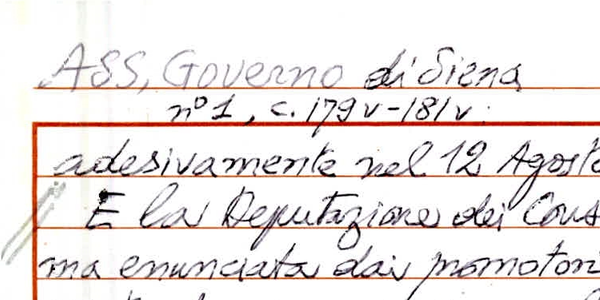 ASS, Governo di Siena
nº 1, c. 179v-181v.
adesivamente nel 12 Agosto
E la Deputazione dei Cons
ma enunciata dai promotori